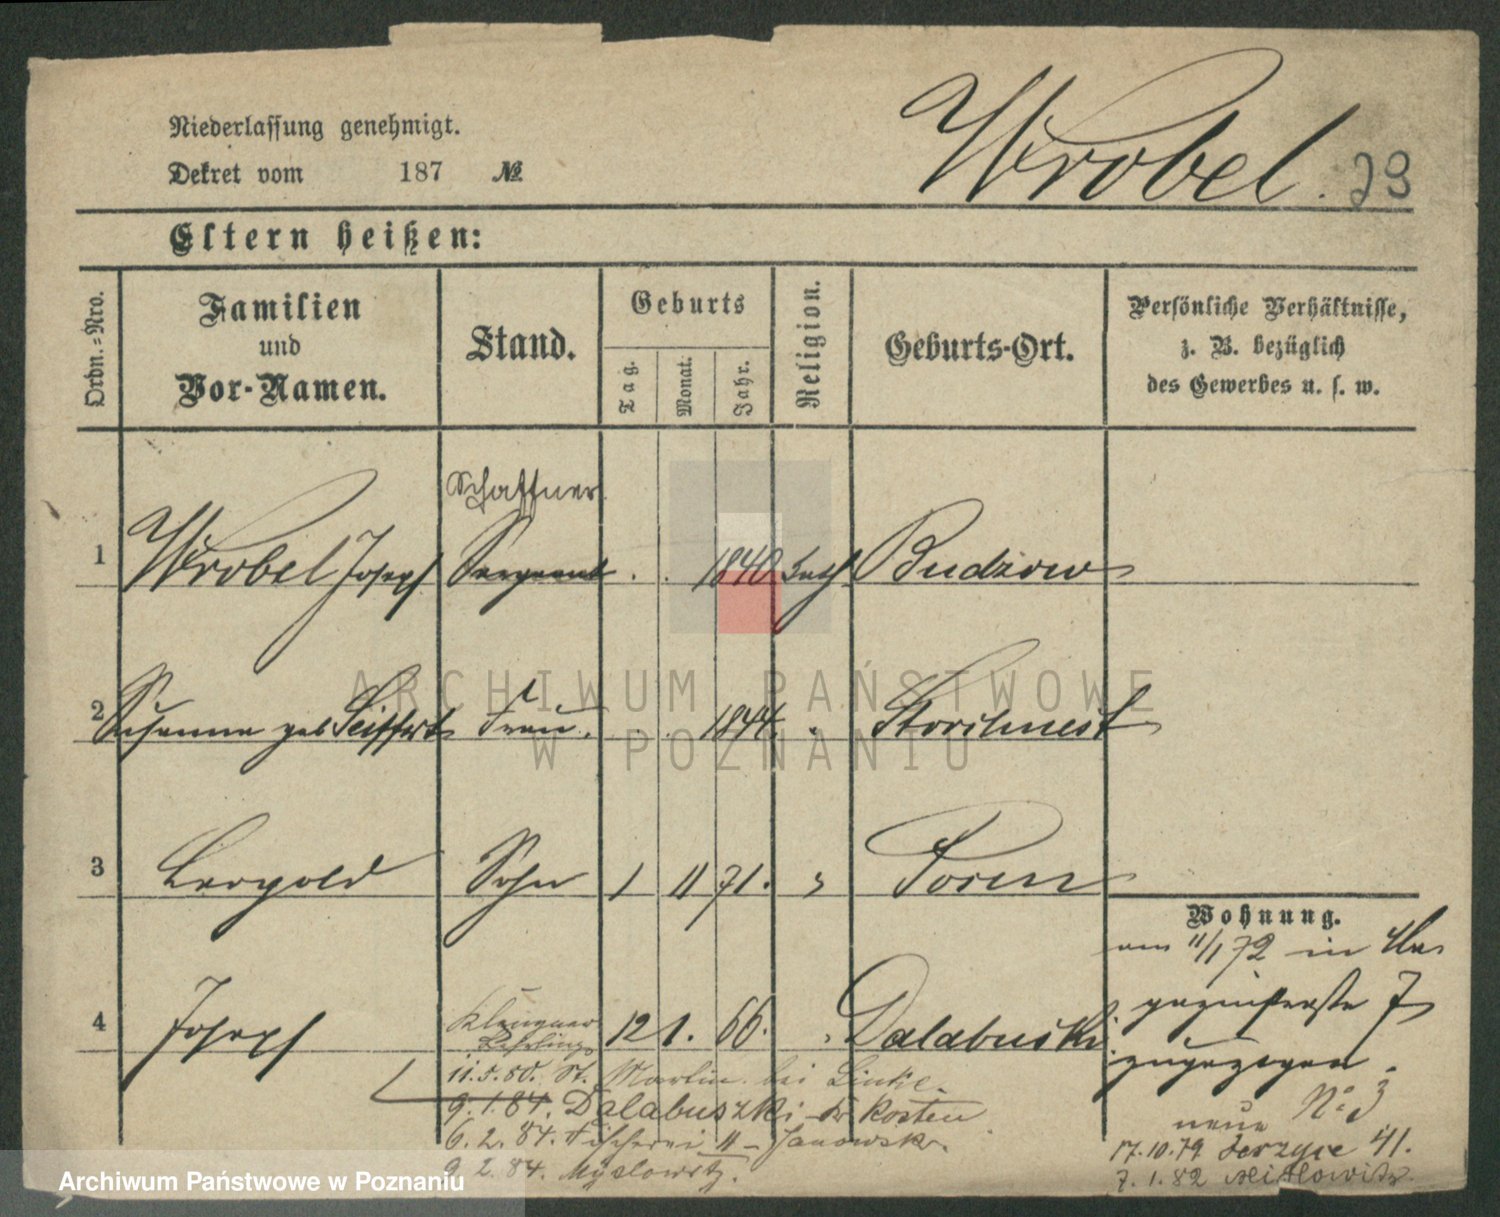 Niederlassung genehmigt.
Dekret vom 187 №
Wrobel. 23
Eltern heißen:
Ordn.-Nro.
Familien und Vor-Namen.
Stand.
Geburts
Tag.
Monat.
Jahr.
Religion.
Geburts-Ort.
Persönliche Verhältnisse,
z. B. bezüglich
des Gewerbes u. s. w.
Schaffner
1 Wrobel Joseph Sergeant . . 1840 kath Budzow
2 Susanna geb Seiffert Frau . . 1844. " Storchnest
3 Leopold Sohn 1 11 71. " Posen
Wohnung.
am 11/1 72 in
zugezogen.
4 Joseph Klempner Lehrling 12 1. 66. " Dalabuski
11.5.80. St. Martin bei Linke.
9.1.84. Dalabuszki Kr Kosten
6.2.84. Fischerei 11 Janowsk.
9.2.84. Myslowitz.
No 3
neue
17.10.79 Jerzyce 41.
7.1.82
ARCHIWUM PAŃSTWOWE
W POZNANIU
Archiwum Państwowe w Poznaniu